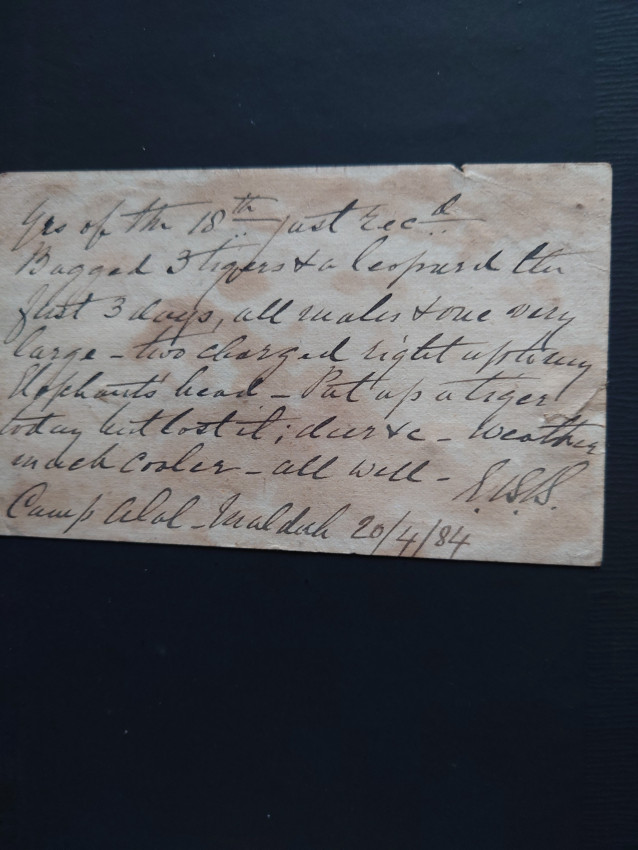 Yrs of the 18th just Recd
Bagged 3 tigers & a leopard the
first 3 days, all males & one very
large - two charged right up to my
Elephants' head - Put up a tiger
today but lost it; deer &c - Weather
much cooler - all well -
Camp Alal - Maldah 20/4/84